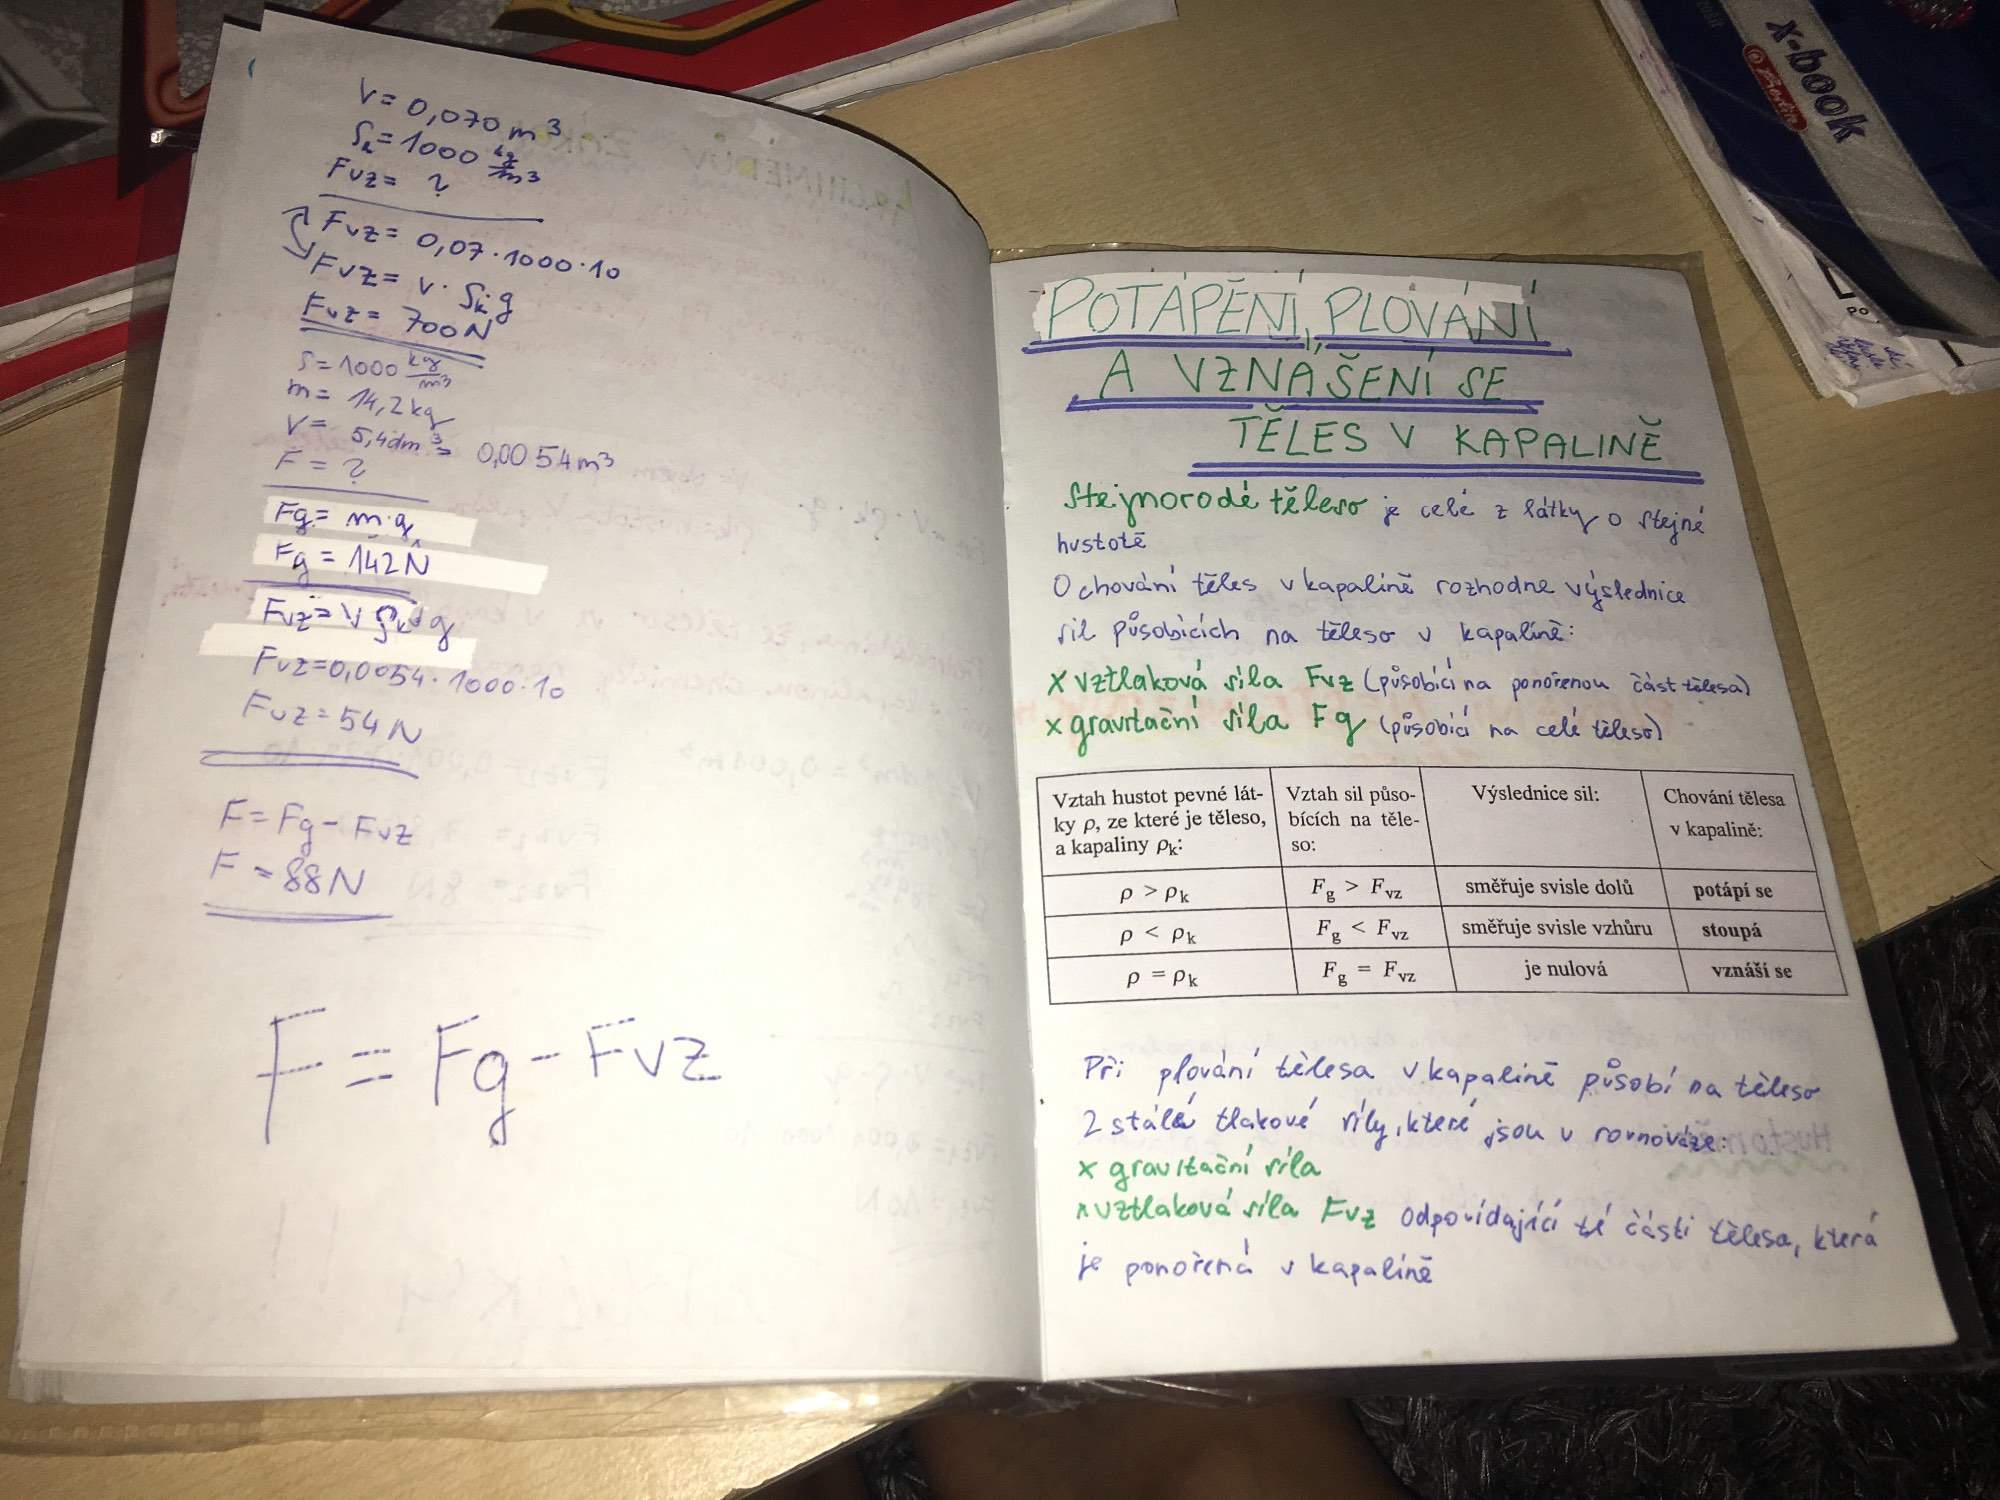 V = 0,070 m³
ρk = 1000 kg/m³
Fvz = ?
Fvz = 0,07 · 1000 · 10
Fvz = V · ρk · g
Fvz = 700 N
ρ = 1000 kg/m³
m = 14,2 kg
V = 5,4 dm³ = 0,0054 m³
F = ?
Fg = m · g
Fg = 142 N
Fvz = V ρk · g
Fvz = 0,0054 · 1000 · 10
Fvz = 54 N
F = Fg - Fvz
F = 88 N
F = Fg - Fvz
POTÁPĚNÍ, PLOVÁNÍ
A VZNÁŠENÍ SE
TĚLES V KAPALINĚ
Stejnorodé těleso je celé z látky o stejné
hustotě
O chování těles v kapalině rozhodne výslednice
sil působících na těleso v kapalině:
x vztlaková síla Fvz (působící na ponořenou část tělesa)
x gravitační síla Fg (působící na celé těleso)
Vztah hustot pevné lát-
ky ρ, ze které je těleso,
a kapaliny ρk:
Vztah sil půso-
bících na těle-
so:
Výslednice sil:
Chování tělesa
v kapalině:
ρ > ρk Fg > Fvz směřuje svisle dolů potápí se
ρ < ρk Fg < Fvz směřuje svisle vzhůru stoupá
ρ = ρk Fg = Fvz je nulová vznáší se
Při plování tělesa v kapalině působí na těleso
2 stálé tlakové síly, které jsou v rovnováze:
x gravitační síla
x vztlaková síla Fvz odpovídající té části tělesa, která
je ponořená v kapalině
x-book
Herlitz